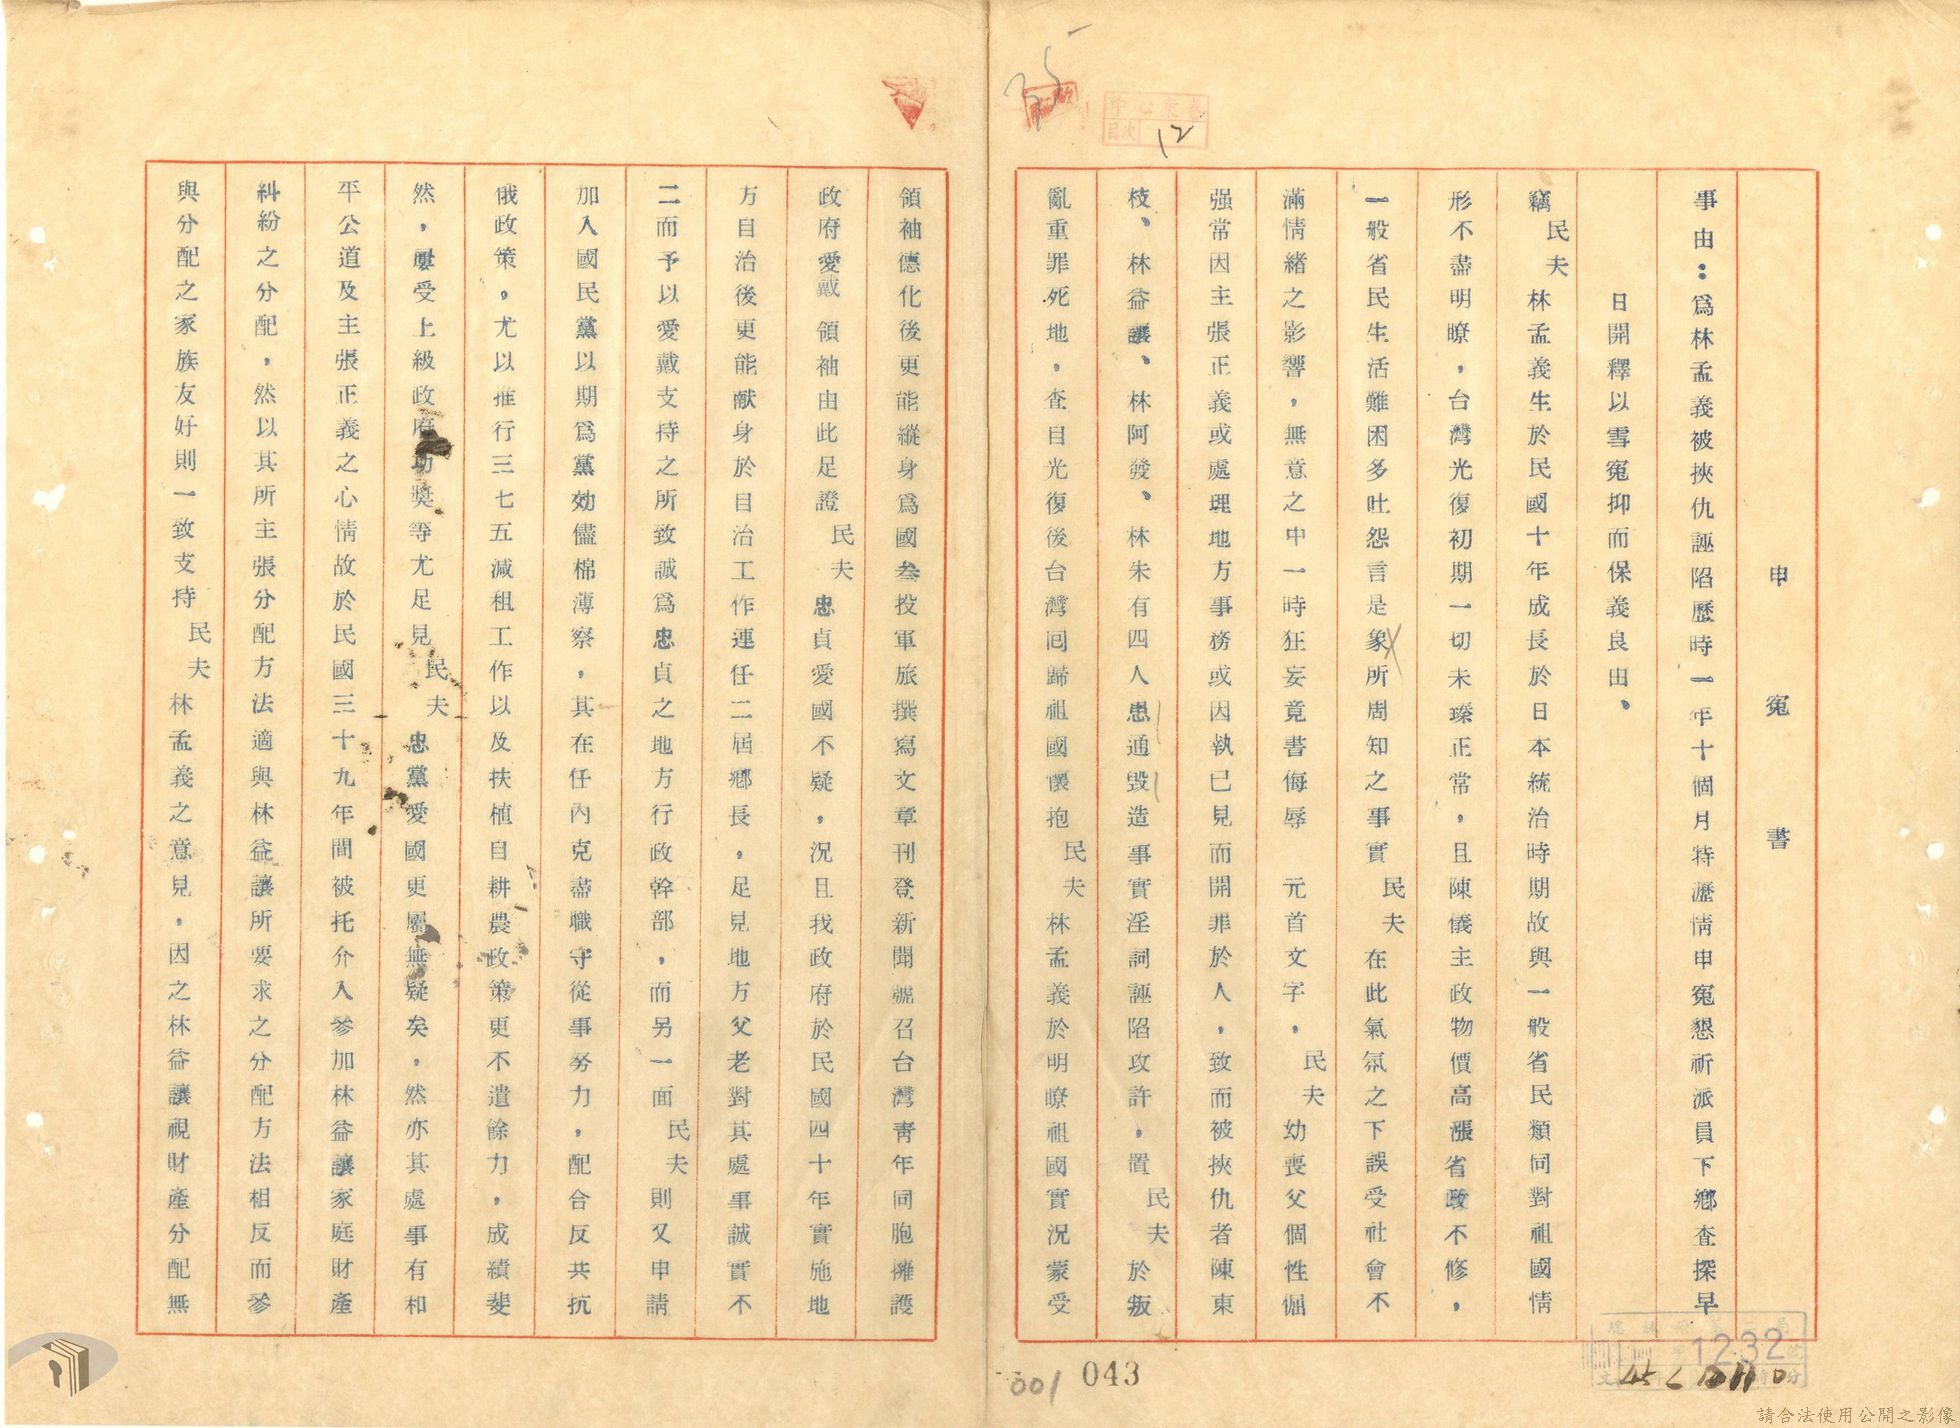 35
中心案卷
目次
12
申冤書
事由：爲林孟義被挾仇誣陷歷時一年十個月特瀝情申冤懇祈派員下鄉查探早
日開釋以雪冤抑而保義良由、
竊民夫林孟義生於民國十年成長於日本統治時期故與一般省民類同對祖國情
形不盡明瞭，台灣光復初期一切未臻正常，且陳儀主政物價高漲省政不修，
一般省民生活難困多吐怨言是象所周知之事實民夫在此氣氛之下誤受社會不
滿情緒之影響，無意之中一時狂妄竟書侮辱　元首文字，民夫幼喪父個性倔
强常因主張正義或處理地方事務或因執已見而開罪於人，致而被挾仇者陳東
枝、林益讓、林阿發、林朱有四人患通毀造事實淫詞誣陷攻許，置民夫於叛
亂重罪死地，查自光復後台灣回歸祖國懷抱民夫林孟義於明瞭祖國實況蒙受
領袖德化後更能縱身爲國叁投軍旅撰寫文章刊登新聞號召台灣靑年同胞擁護
政府愛戴　領袖由此足證民夫忠貞愛國不疑，況且我政府於民國四十年實施地
方自治後更能献身於自治工作連任二屆鄉長，足見地方父老對其處事誠實不
二而予以愛戴支持之所致誠爲忠貞之地方行政幹部，而另一面民夫則又申請
加入國民黨以期爲黨効儘棉薄察，其在任內克盡職守從事努力，配合反共抗
俄政策，尤以推行三七五減租工作以及扶植自耕農政策更不遺餘力，成績斐
然，屢受上級政府功獎等尤足見民夫忠黨愛國更屬無疑矣，然亦其處事有和
平公道及主張正義之心情故於民國三十九年間被托介入參加林益讓家庭財產
糾紛之分配，然以其所主張分配方法適與林益讓所要求之分配方法相反而參
與分配之家族友好則一致支持民夫林孟義之意見，因之林益讓視財產分配無
001
043
1232
請合法使用公開之影像